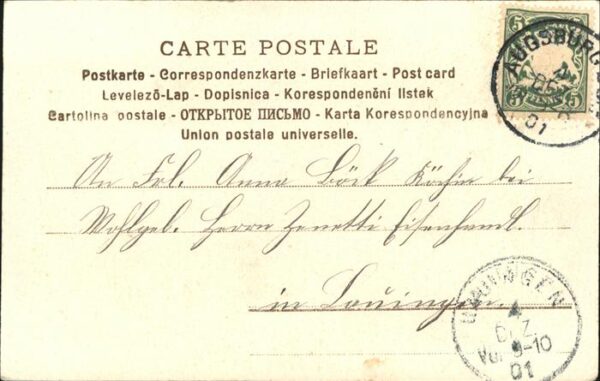 CARTE POSTALE
Postkarte - Correspondenzkarte - Briefkaart - Post card
Levelező-Lap - Dopisnica - Korespondenční lístek
Cartolina postale - ОТКРЫТОЕ ПИСЬМО - Karta Korespondencyjna
Union postale universelle.
5 5
AUGSBURG
DEZ
01
An Frl. Anna Böck Köchin bei
Wohlgeb. Herrn Zenetti Eisenhandl.
in Lauingen.
LAUINGEN
DEZ
Vor 9-10
01